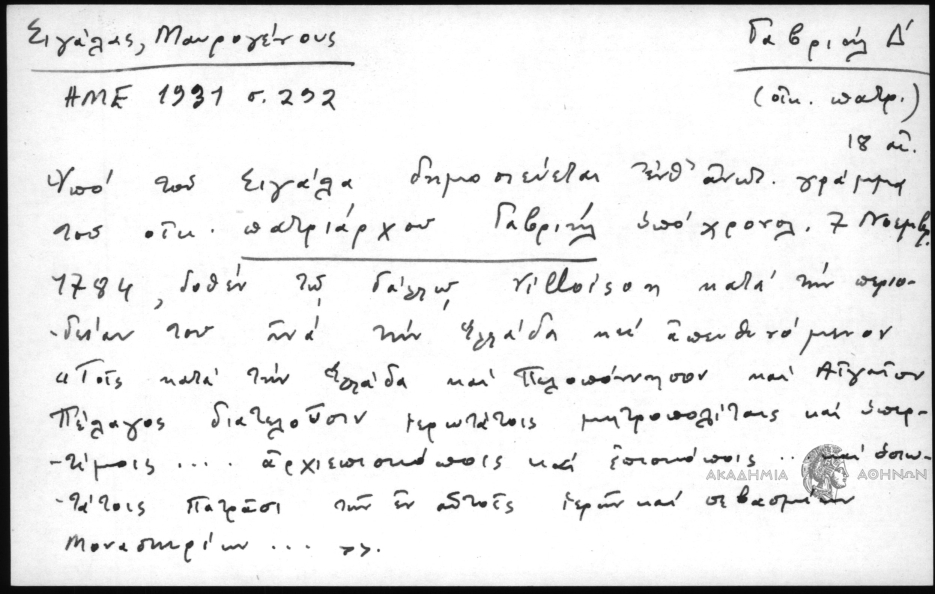 Σιγάλας, Μαυρογένους
Γαβριήλ Δ'
ΗΜΕ 1931 σ. 292
(οἰκ. πατρ.)
18 αἰ.
Ὑπό τοῦ Σιγάλα δημοσιεύεται ἐνθ' ἀνωτ. γράμμα
τοῦ οἰκ. πατριάρχου Γαβριήλ ὑπό χρονολ. 7 Νοεμβρ.
1784, δοθέν τῷ Γάλλῳ Villoison κατά τήν περιο-
-δείαν του ἀνά τήν Ἑλλάδα καί ἀπευθυνόμενον
«Τοῖς κατά τήν Ἑλλάδα καί Πελοπόννησον καί Αἰγαῖον
Πέλαγος διατελοῦσιν ἱερωτάτοις μητροπολίταις καί ὑπερ-
-τίμοις .... ἀρχιεπισκόποις καί ἐπισκόποις .. καί ὁσιω-
-τάτοις Πατράσι τῶν ἐν αὐτοῖς ἱερῶν καί σεβασμίων
Μοναστηρίων ... ».
ΑΚΑΔΗΜΙΑ ΑΘΗΝΩΝ